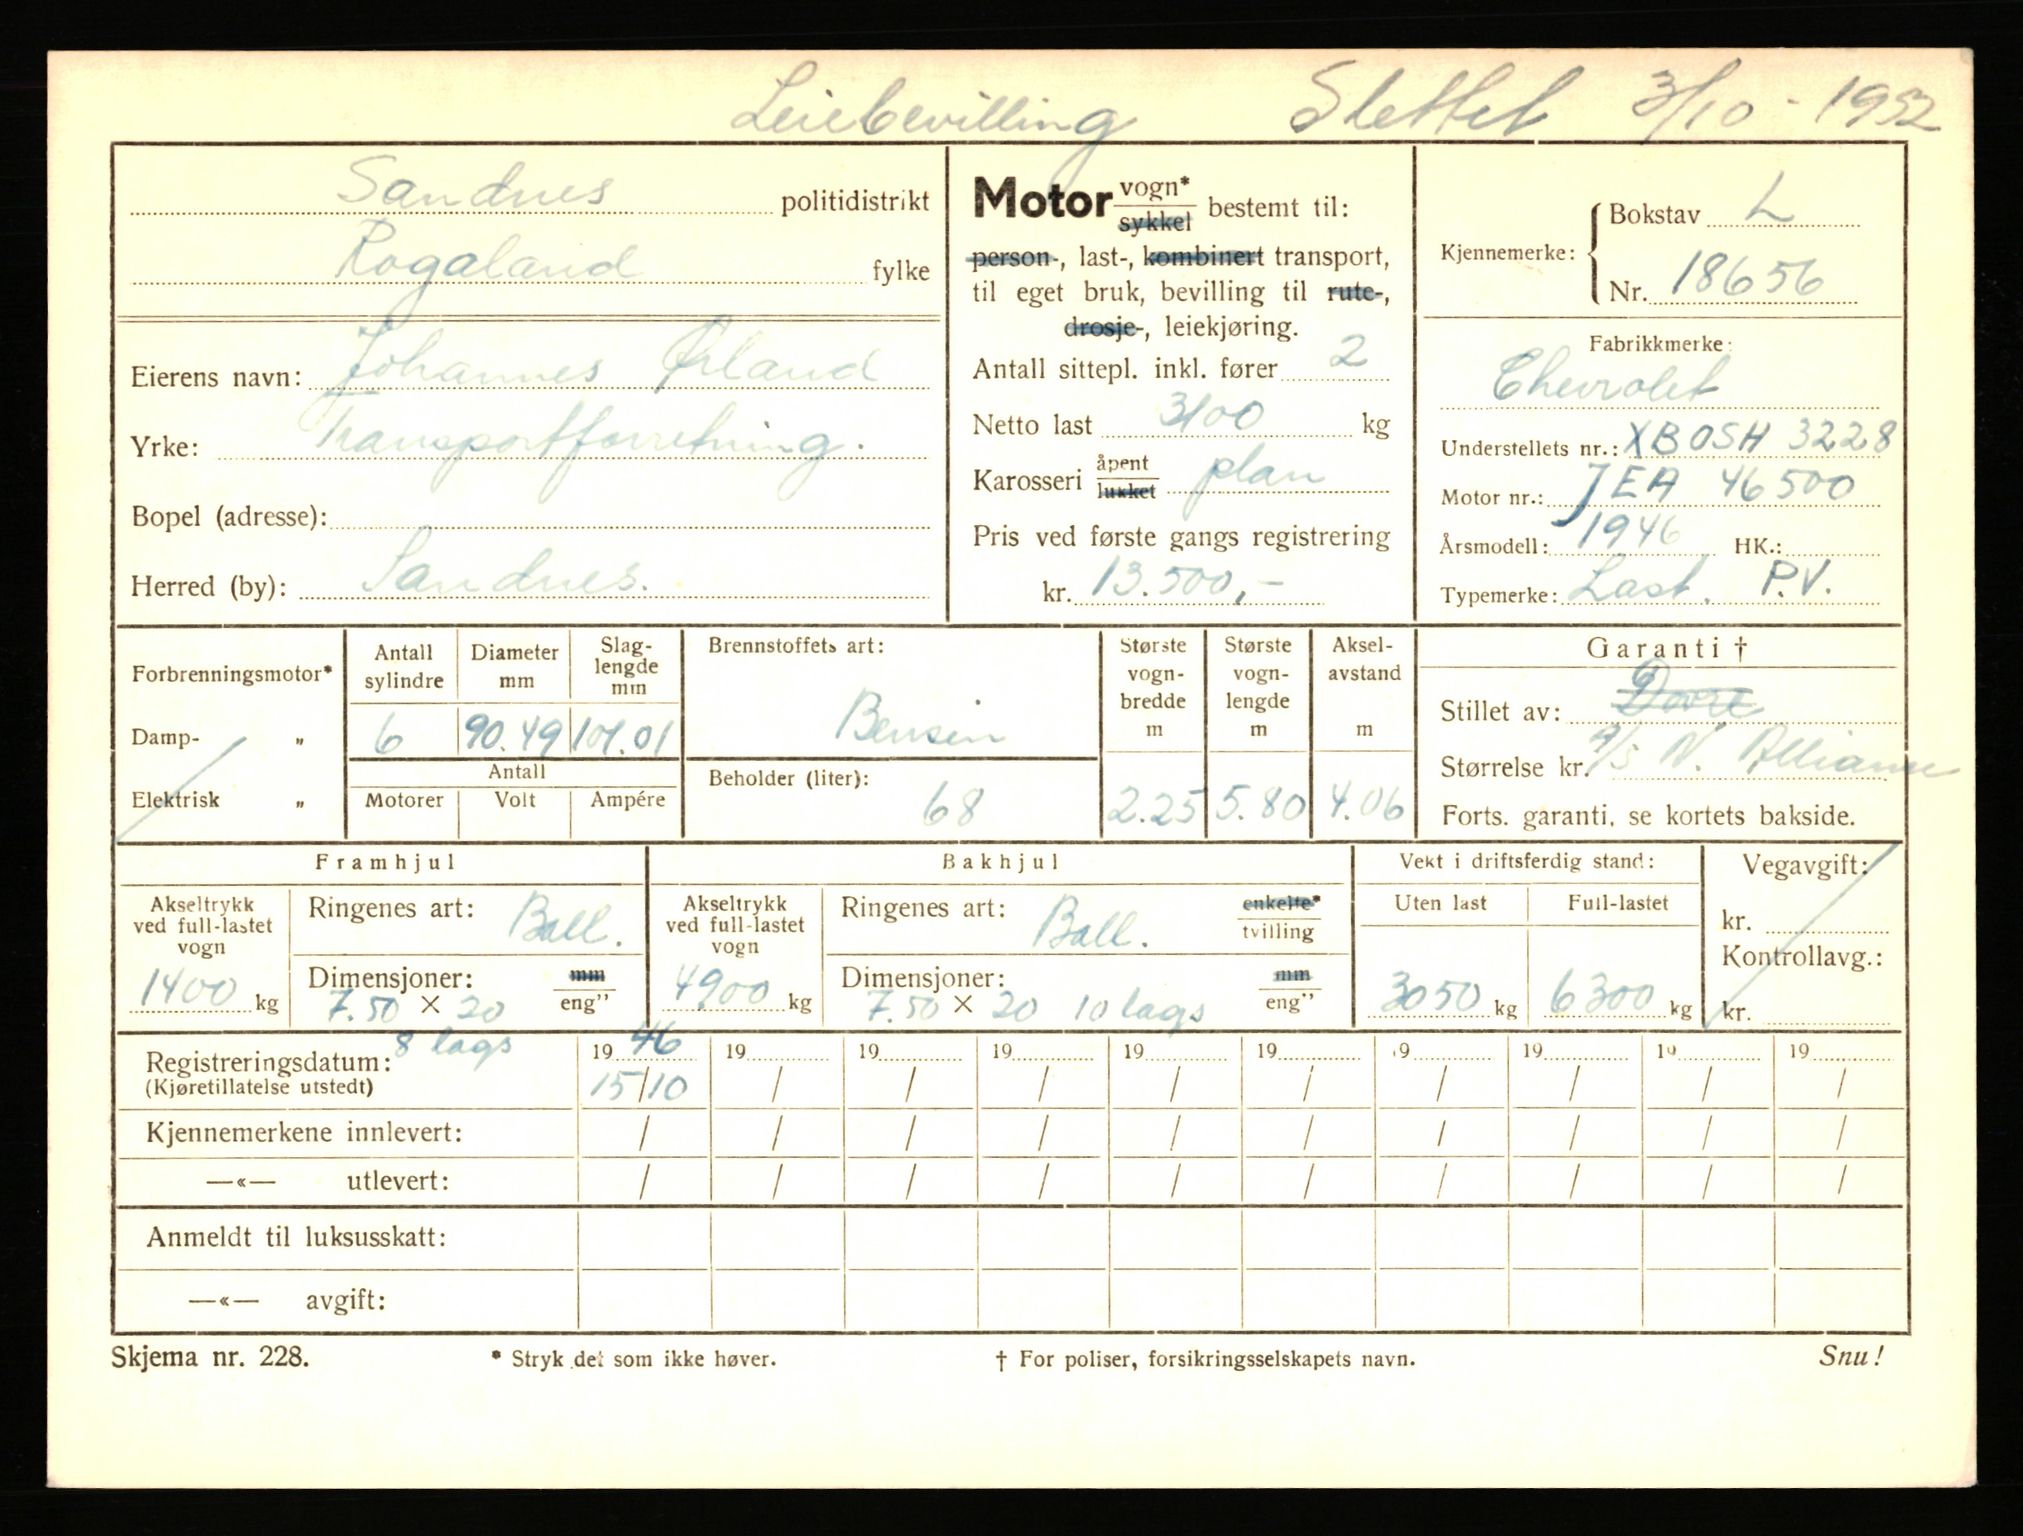 Leiebevilling Slettet 3/10 - 1952
Sandnes politidistrikt
Rogaland fylke
Eierens navn: Johannes Ørland
Yrke: Transportforretning.
Bopel (adresse):
Herred (by): Sandnes.
Motor vogn* bestemt til:
sykkel
person-, last-, kombinert transport,
til eget bruk, bevilling til rute-,
drosje-, leiekjøring.
Antall sittepl. inkl. fører 2
Netto last 3100 kg
Karosseri åpent plan
lukket
Pris ved første gangs registrering
kr. 13.500,-
Kjennemerke: Bokstav L
Nr. 18656
Fabrikkmerke:
Chevrolet
Understellets nr.: XBOSH 3228
Motor nr.: JEA 46500
Årsmodell: 1946 HK.:
Typemerke: Last. P.V.
Forbrenningsmotor*
Damp- „
Elektrisk „
Antall sylindre Diameter mm Slag-lengde mm
6 90.49 101.01
Antall
Motorer Volt Ampére
Brennstoffets art:
Bensin
Beholder (liter):
68
Største vogn-bredde m
2.25
Største vogn-lengde m
5.80
Aksel-avstand m
4.06
Garanti †
Stillet av: Dovre
A/S N. Alliance
Størrelse kr.
Forts. garanti, se kortets bakside.
Framhjul
Akseltrykk
ved full-lastet
vogn
1400 kg
Ringenes art: Ball.
Dimensjoner: mm
7.50 X 20 eng"
8 lags
Bakhjul
Akseltrykk
ved full-lastet
vogn
4900 kg
Ringenes art: Ball. enkelte*
tvilling
Dimensjoner: mm
7.50 X 20 10 lags eng"
Vekt i driftsferdig stand:
Uten last Full-lastet
3050 kg 6300 kg
Vegavgift:
kr.
Kontrollavg.:
kr.
Registreringsdatum: 19 46 19 19 19 19 19 19 19 19 19
(Kjøretillatelse utstedt) 15/10 / / / / / / / / /
Kjennemerkene innlevert: / / / / / / / / / /
—«— utlevert: / / / / / / / / / /
Anmeldt til luksusskatt:
—«— avgift:
Skjema nr. 228. * Stryk det som ikke høver. † For poliser, forsikringsselskapets navn. Snu!